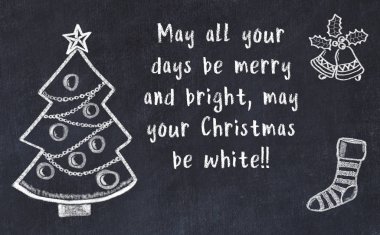 May all your
days be merry
and bright, may
your Christmas
be white!!